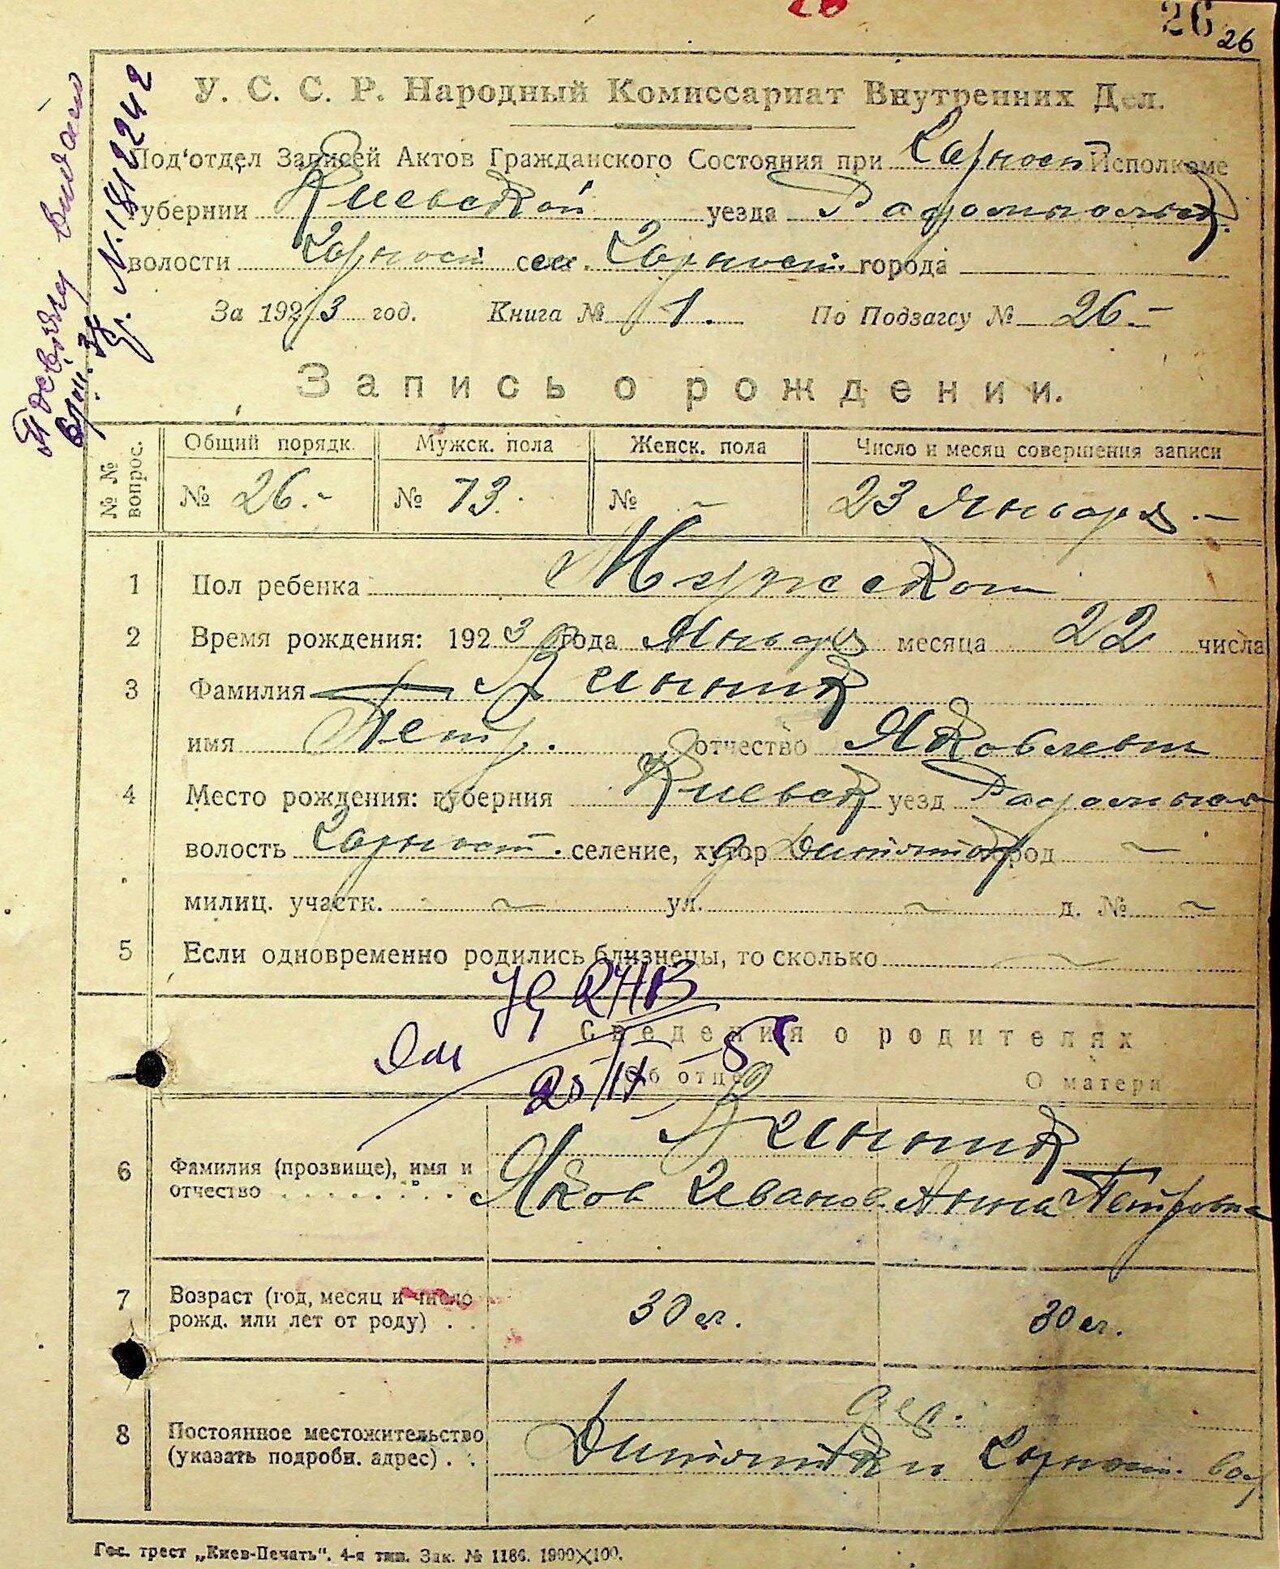 26
26 26
У. С. С. Р. Народный Комиссариат Внутренних Дел.
Под‘отдел Записей Актов Гражданского Состояния при Горност Исполкоме
губернии Киевской уезда
волости Горност сел. Горност. города
За 1923 год. Книга № 1. По Подзагсу № 26.-
Запись о рождении.
№ № вопрос.
Общий порядк. Мужск. пола Женск. пола Число и месяц совершения записи
№ 26.- № 13. № - 23 Января.-
1 Пол ребенка Мужской
2 Время рождения: 1923 года Января месяца 22 числа
3 Фамилия Винник
имя Петр. отчество Яковлевич
4 Место рождения: губерния Киевск уезд
волость Горност. селение, хутор д город ~
милиц. участк. ~ ул. ~ д. № ~
5 Если одновременно родились близнецы, то сколько ~
Сведения о родителях
Об отце О матери
Винник
6 Фамилия (прозвище), имя и
отчество . . . . . . . . Яков Иванов. Анна Петровна
7 Возраст (год, месяц и число
рожд. или лет от роду) . . 30 л. 30 л.
дер.
8 Постоянное местожительство
(указать подробн. адрес) . . Дитятки Горност. вол.
Гос. трест „Киев-Печать“. 4-я тип. Зак. № 1186. 1900×100.